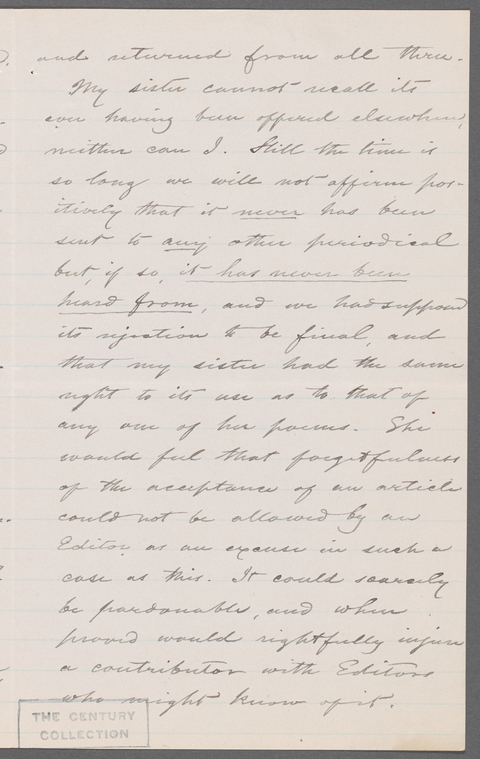 and returned from all three.
My sister cannot recall its
ever having been offered elsewhere,
neither can I. Still the time is
so long we will not affirm pos-
itively that it never has been
sent to any other periodical
but, if so, it has never been
heard from, and we had supposed
its rejection to be final, and
that my sister had the same
right to its use as to that of
any one of her poems. She
would feel that forgetfulness
of the acceptance of an article
could not be allowed by an
Editor as an excuse in such a
case as this. It could scarcely
be pardonable, and when
proved would rightfully injure
a contributor with Editors
who might know of it.
THE CENTURY
COLLECTION